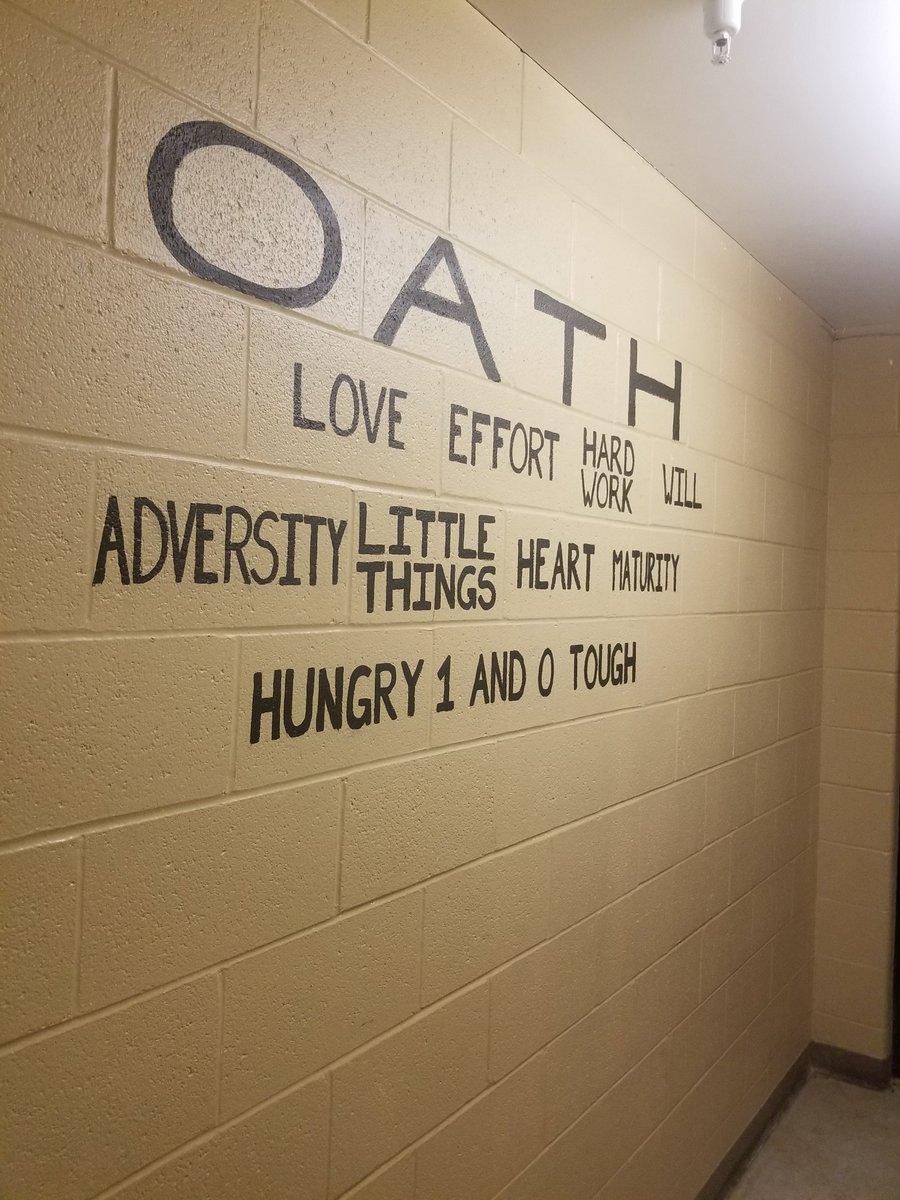 OATH
LOVE EFFORT HARD WORK WILL
ADVERSITY LITTLE THINGS HEART MATURITY
HUNGRY 1 AND 0 TOUGH